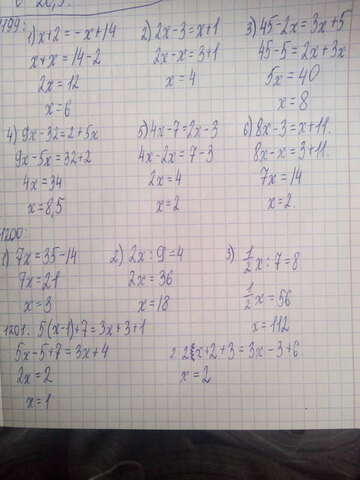 1199:
1) x+2=-x+14
x+x=14-2
2x=12
x=6
2) 2x-3=x+1
2x-x=3+1
x=4
3) 45-2x=3x+5
45-5=2x+3x
5x=40
x=8
4) 9x-32=2+5x
9x-5x=32+2
4x=34
x=8,5
5) 4x-7=2x-3
4x-2x=7-3
2x=4
x=2
6) 8x-3=x+11.
8x-x=3+11.
7x=14
x=2.
1200:
1) 7x=35-14
7x=21
x=3
2) 2x:9=4
2x=36
x=18
3) 1/2x:7=8
1/2x=56
x=112
1201: 5(x-1)+7=3x+3+1
5x-5+7=3x+4
2x=2
x=1
2. 2x+2+3=3x-3+6
x=2